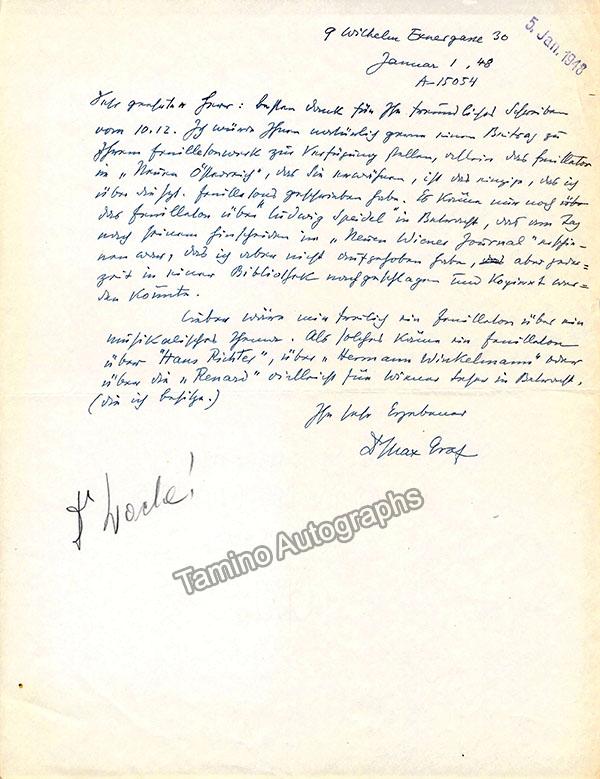 9 Wilhelm Exnergasse 30
5. Jan. 1948
Januar 1, 48
A-15054
Sehr geehrter Herr: besten Dank für Ihr freundliches Schreiben
vom 10.12. Ich würde Ihnen natürlich gerne einen Beitrag zu
Ihrem Feuilletonwerk zur Verfügung stellen, allein das Feuilleton
in „Neuen Österreich", das Sie erwähnen, ist das einzige, das ich
über die geschrieben habe. Es käme nur noch
das Feuilleton über „Ludwig Speidel" in Betracht, das am Tag
nach seinem Hinscheiden im „Neuen Wiener Journal" erschie-
nen war, das ich aber nicht aufgehoben habe, aber jeder=
zeit in einer Bibliothek nachgeschlagen und kopiert wer=
den könnte.
Lieber wäre mir freilich ein Feuilleton über ein
musikalisches Thema. Als solches käme ein Feuilleton
über "Hans Richter", über „Hermann Winkelmann" oder
über die „Renard" vielleicht für Wiener Leser in Betracht,
(die ich besitze.)
Ihr sehr Ergebener
Dr Max Graf
Dr
Tamino Autographs